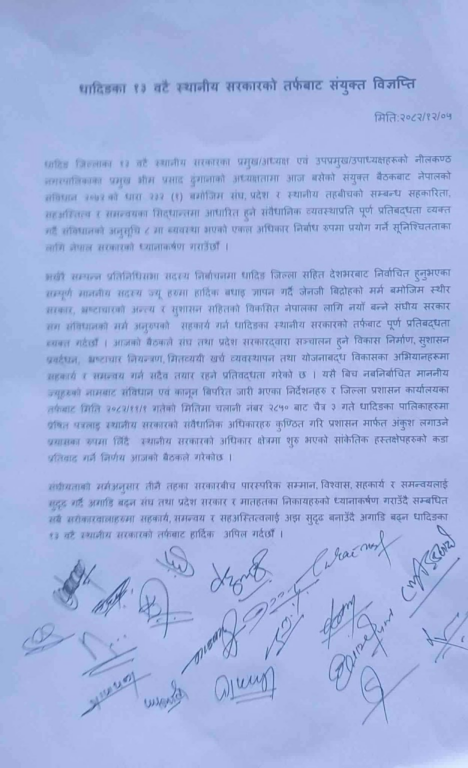 धादिङका १३ वटै स्थानीय सरकारको तर्फबाट संयुक्त विज्ञप्ति
मिति:२०८२/१२/०५
धादिङ जिल्लाका १३ वटै स्थानीय सरकारका प्रमुख/अध्यक्ष एवं उपप्रमुख/उपाध्यक्षहरूको नीलकण्ठ
नगरपालिकाका प्रमुख भीम प्रसाद ढुंगानाको अध्यक्षतामा आज बसेको संयुक्त बैठकबाट नेपालको
संविधान २०७२ को धारा २३२ (१) बमोजिम संघ, प्रदेश र स्थानीय तहबीचको सम्बन्ध सहकारिता,
सहअस्तित्व र समन्वयका सिद्धान्तमा आधारित हुने संवैधानिक व्यवस्थाप्रति पूर्ण प्रतिबद्धता व्यक्त
गर्दै संविधानको अनुसूचि ८ मा व्यवस्था भएको एकल अधिकार निर्बाध रुपमा प्रयोग गर्ने सुनिश्चितताका
लागि नेपाल सरकारको ध्यानाकर्षण गराउँछौं ।
भर्खरै सम्पन्न प्रतिनिधिसभा सदस्य निर्वाचनमा धादिङ जिल्ला सहित देशभरबाट निर्वाचित हुनुभएका
सम्पूर्ण माननीय सदस्य ज्यू हरुमा हार्दिक बधाइ ज्ञापन गर्दै जेनजी बिद्रोहको मर्म बमोजिम स्थीर
सरकार, भ्रष्टाचारको अन्त्य र सुशासन सहितको विकसित नेपालका लागि नयाँ बन्ने संघीय सरकार
सग संविधानको मर्म अनुरुपको सहकार्य गर्न धादिङका स्थानीय सरकारको तर्फबाट पूर्ण प्रतिबद्धता
व्यक्त गर्दछौं । आजको बैठकले संघ तथा प्रदेश सरकारद्वारा सञ्चालन हुने विकास निर्माण, सुशासन
प्रवर्द्धन, भ्रष्टाचार नियन्त्रण, मितव्ययी खर्च व्यवस्थापन तथा योजनाबद्ध विकासका अभियानहरूमा
सहकार्य र समन्वय गर्न सदैव तयार रहने प्रतिबद्धता गरेको छ । यसै बिच नवनिर्वाचित माननीय
ज्यूहरुको नामबाट संविधान एवं कानून बिपरित जारी भएका निर्देशनहरु र जिल्ला प्रशासन कार्यालयका
तर्फबाट मिति २०८२/१२/१ गतेको मितिमा चलानी नंबर २८५० बाट चैत्र ३ गते धादिङका पालिकाहरुमा
प्रेषित पत्रलाइ स्थानीय सरकारको संवैधानिक अधिकारहरु कुण्ठित गरि प्रशासन मार्फत अंकुश लगाउने
प्रयासका रुपमा लिँदै स्थानीय सरकारको अधिकार क्षेत्रमा शुरु भएको सांकेतिक हस्तक्षेपहरुको कडा
प्रतिवाद गर्ने निर्णय आजको बैठकले गरेकोछ ।
संघीयताको मर्मअनुसार तीनै तहका सरकारबीच पारस्परिक सम्मान, विश्वास, सहकार्य र समन्वयलाई
सुदृढ गर्दै अगाडि बढ्न संघ तथा प्रदेश सरकार र मातहतका निकायहरुको ध्यानाकर्षण गराउँदै सम्बन्धित
सबै सरोकारवालाहरुमा सहकार्य, समन्वय र सहअस्तित्वलाई अझ सुदृढ बनाउँदै अगाडि बढ्न धादिङका
१३ वटै स्थानीय सरकारको तर्फबाट हार्दिक अपिल गर्दछौं ।